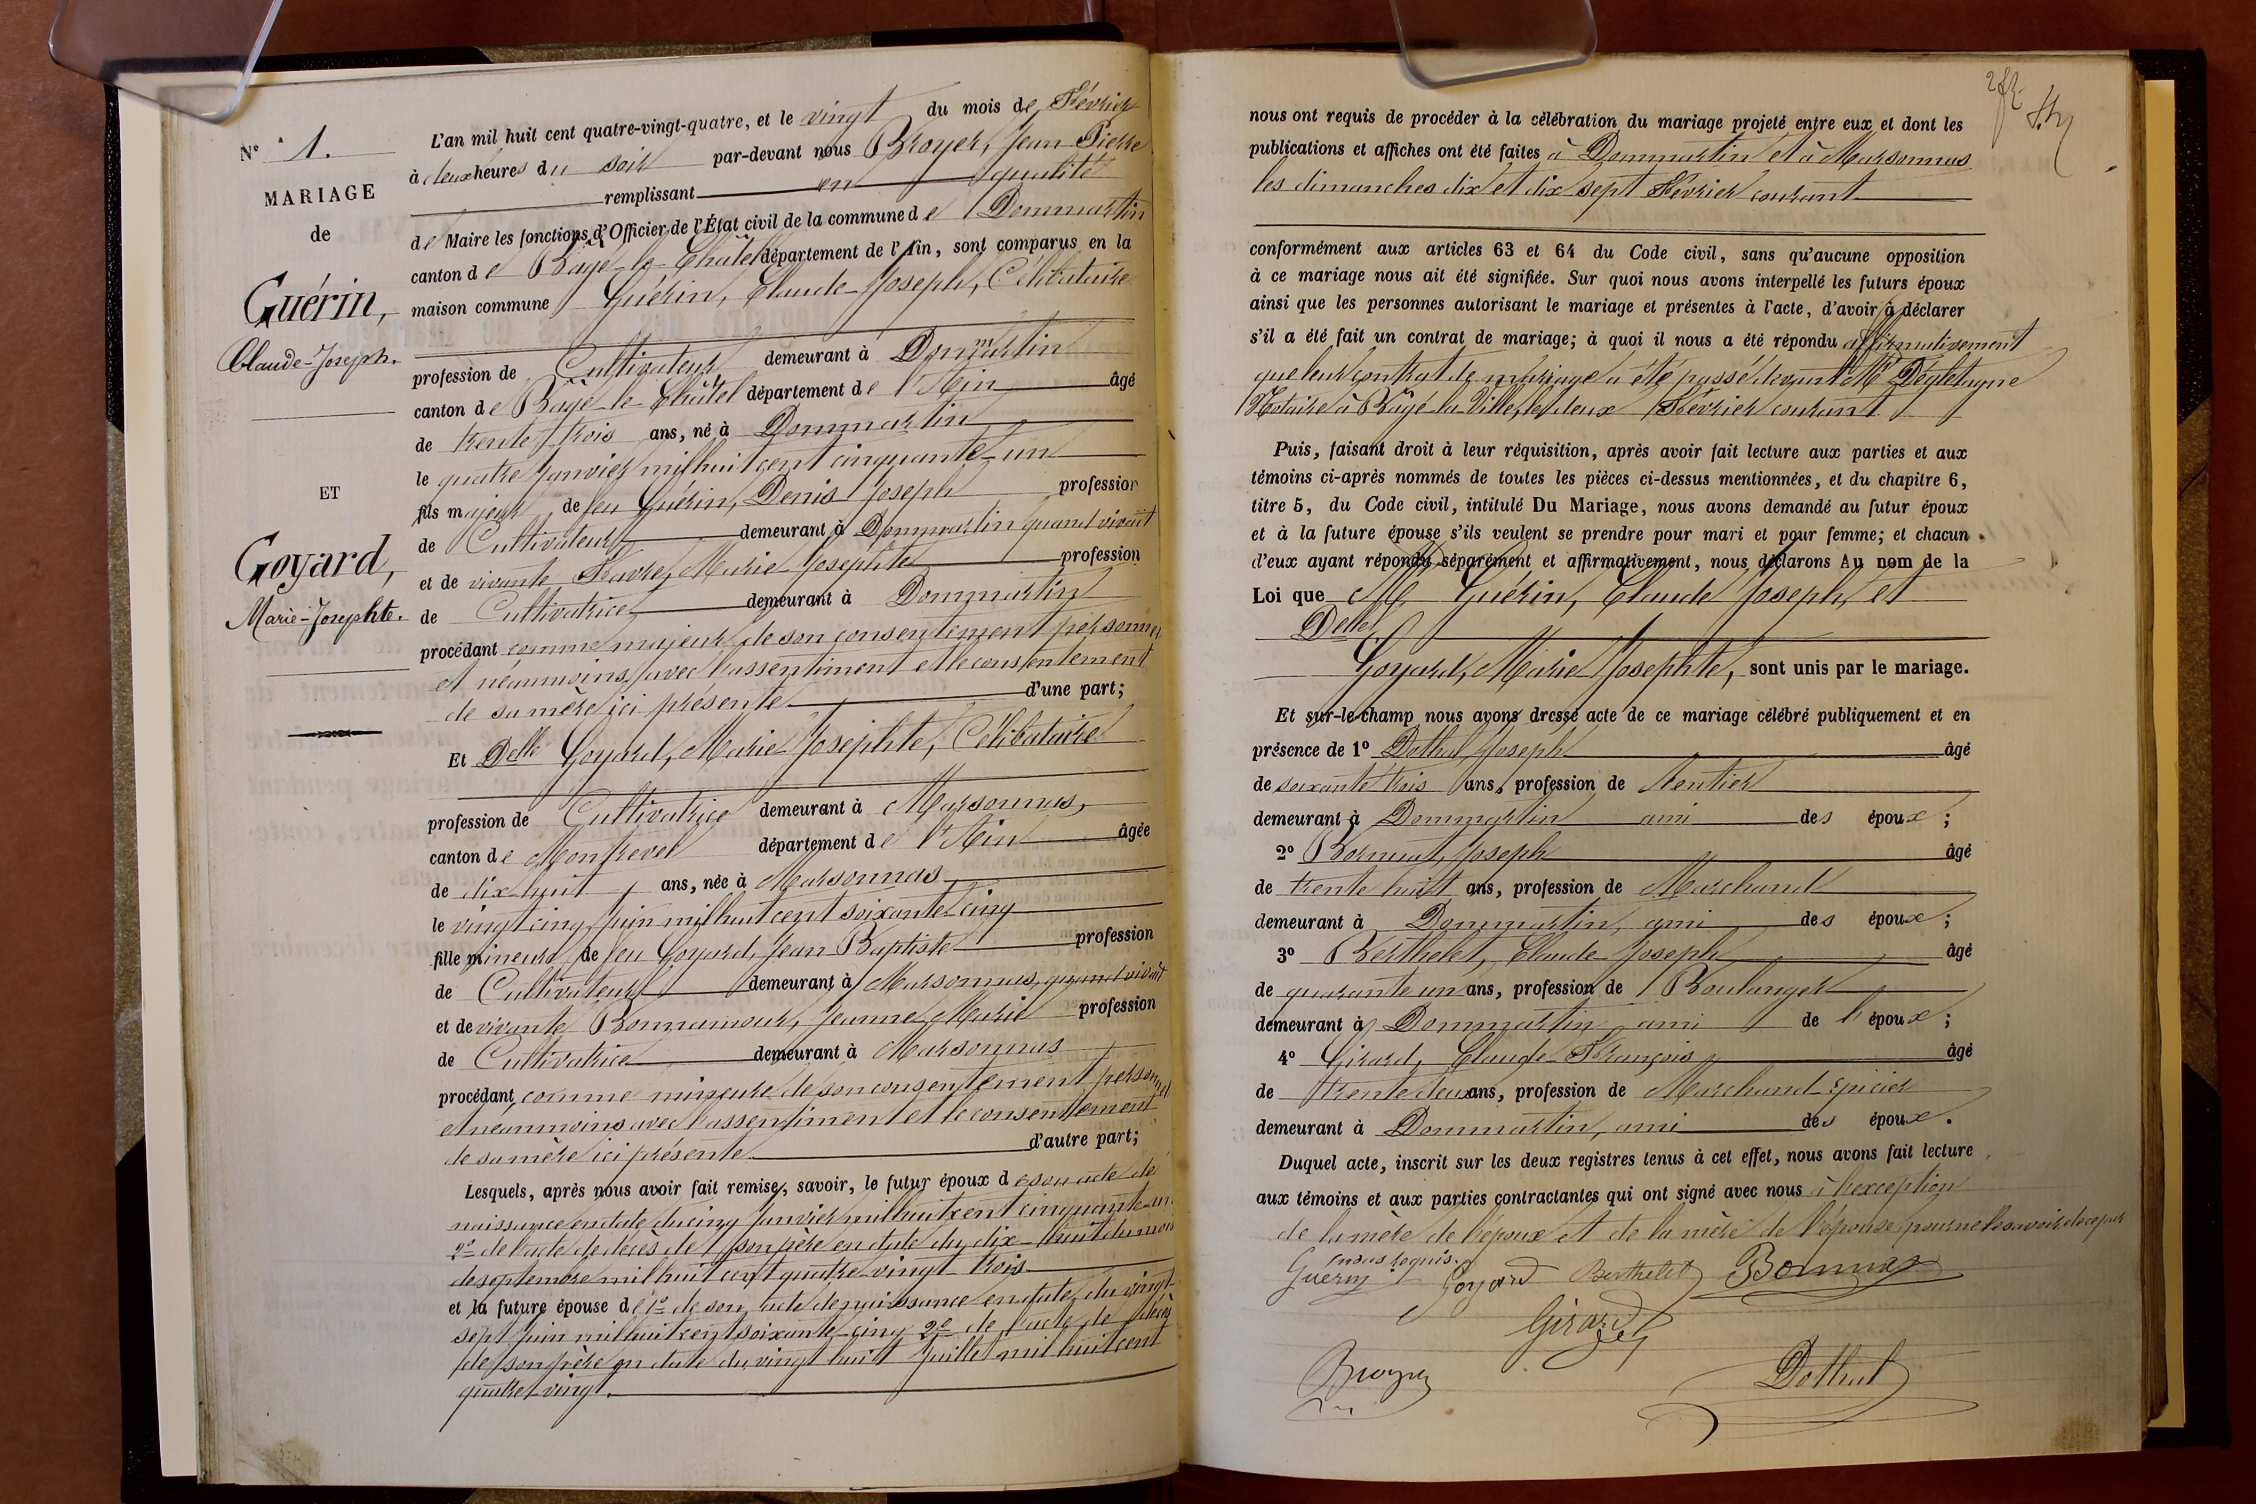 N° 1.
MARIAGE
de
Guérin,
Claude-Joseph.
ET
Goyard,
Marie-Josephte.
L'an mil huit cent quatre-vingt-quatre, et le vingt du mois de Février
à deux heures du soir par-devant nous Broyer, Jean Pierre
remplissant en qualité
de Maire les fonctions d'Officier de l'État civil de la commune de Dommartin
canton de Bâgé-le-Châtel département de l'Ain, sont comparus en la
maison commune Guérin, Claude-Joseph, Célibataire
profession de Cultivateur demeurant à Dommartin
canton de Bâgé-le-Châtel département de l'Ain âgé
de trente trois ans, né à Dommartin
le quatre Janvier mil huit cent cinquante-un
fils majeur de feu Guérin, Denis Joseph profession
de Cultivateur demeurant à Dommartin quand vivait
et de vivante Favre, Marie Josephte profession
de Cultivatrice demeurant à Dommartin
procédant comme majeur de son consentement personnel
et néanmoins avec l'assentiment et le consentement
de sa mère ici présente d'une part;
Et Delle Goyard, Marie Josephte, Célibataire
profession de Cultivatrice demeurant à Marsonnas,
canton de Montrevel département de l'Ain âgée
de dix huit ans, née à Marsonnas
le vingt cinq Juin mil huit cent soixante cinq
fille mineure de feu Goyard, Jean Baptiste profession
de Cultivateur demeurant à Marsonnas, quand vivait
et de vivante Bonnamour, Jeanne Marie profession
de Cultivatrice demeurant à Marsonnas
procédant comme mineure de son consentement personnel
et néanmoins avec l'assentiment et le consentement
de sa mère ici présente d'autre part;
Lesquels, après nous avoir fait remise, savoir, le futur époux de son acte de
naissance en date du cinq Janvier mil huit cent cinquante-un
2° de l'acte de décès de son père en date du dix-huit du mois
de septembre mil huit cent quatre-vingt trois
et la future épouse de 1° de son acte de naissance en date du vingt
sept Juin mil huit cent soixante-cinq 2° de l'acte de décès
de son père en date du vingt huit Juillet mil huit cent
quatre-vingt.
nous ont requis de procéder à la célébration du mariage projeté entre eux et dont les
publications et affiches ont été faites à Dommartin et à Marsonnas
les dimanches dix et dix sept Février courant
conformément aux articles 63 et 64 du Code civil, sans qu'aucune opposition
à ce mariage nous ait été signifiée. Sur quoi nous avons interpellé les futurs époux
ainsi que les personnes autorisant le mariage et présentes à l'acte, d'avoir à déclarer
s'il a été fait un contrat de mariage; à quoi il nous a été répondu affirmativement
que leur contrat de mariage a été passé devant Me Dégletagne
Notaire à Bâgé la Ville, le deux Février courant
Puis, faisant droit à leur réquisition, après avoir fait lecture aux parties et aux
témoins ci-après nommés de toutes les pièces ci-dessus mentionnées, et du chapitre 6,
titre 5, du Code civil, intitulé Du Mariage, nous avons demandé au futur époux
et à la future épouse s'ils veulent se prendre pour mari et pour femme; et chacun
d'eux ayant répondu séparément et affirmativement, nous déclarons Au nom de la
Loi que Mr Guérin, Claude Joseph, et
Delle
Goyard, Marie Josephte, sont unis par le mariage.
Et sur-le-champ nous avons dressé acte de ce mariage célébré publiquement et en
présence de 1° Dothal Joseph âgé
de soixante trois ans, profession de Rentier
demeurant à Dommartin ami des époux;
2° Bornuat, Joseph âgé
de trente huit ans, profession de Marchand
demeurant à Dommartin, ami des époux;
3° Berthelet, Claude Joseph âgé
de quarante un ans, profession de Boulanger
demeurant à Dommartin ami de l'époux;
4° Girard, Claude François âgé
de trente deux ans, profession de Marchand Epicier
demeurant à Dommartin, ami des époux.
Duquel acte, inscrit sur les deux registres tenus à cet effet, nous avons fait lecture
aux témoins et aux parties contractantes qui ont signé avec nous à l'exception
de la mère de l'époux et de la mère de l'épouse pour ne le savoir de ce par
nous requis.
Guerin Goyard Berthelet
Girard
Broyer Dothal